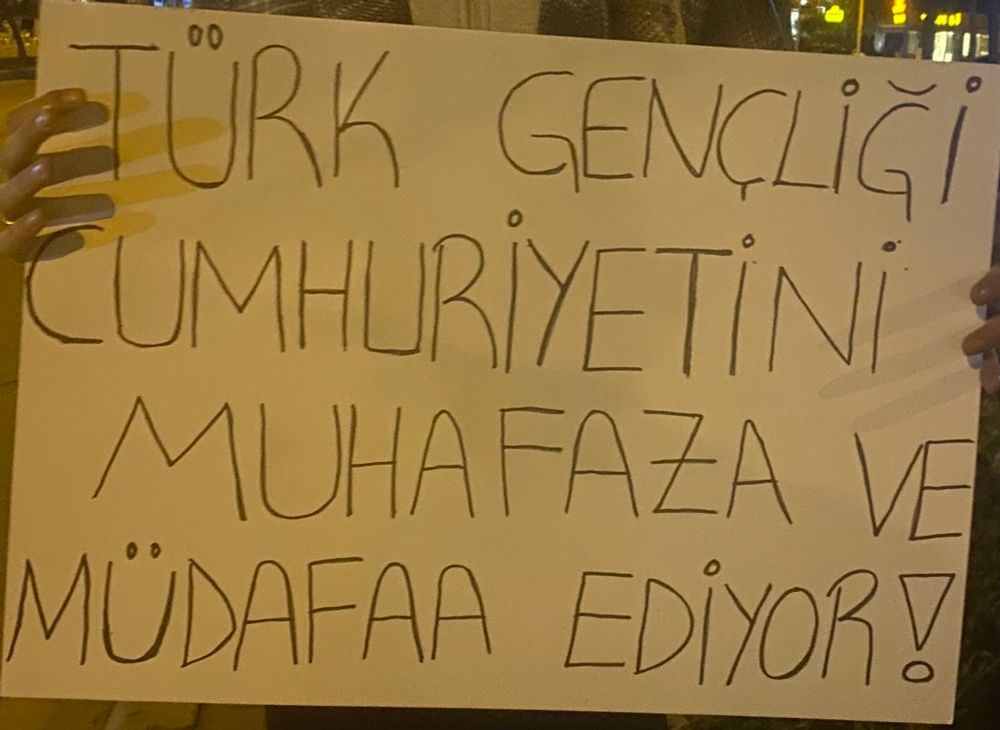 TÜRK GENÇLİĞİ
CUMHURİYETİNİ
MUHAFAZA VE
MÜDAFAA EDİYOR!